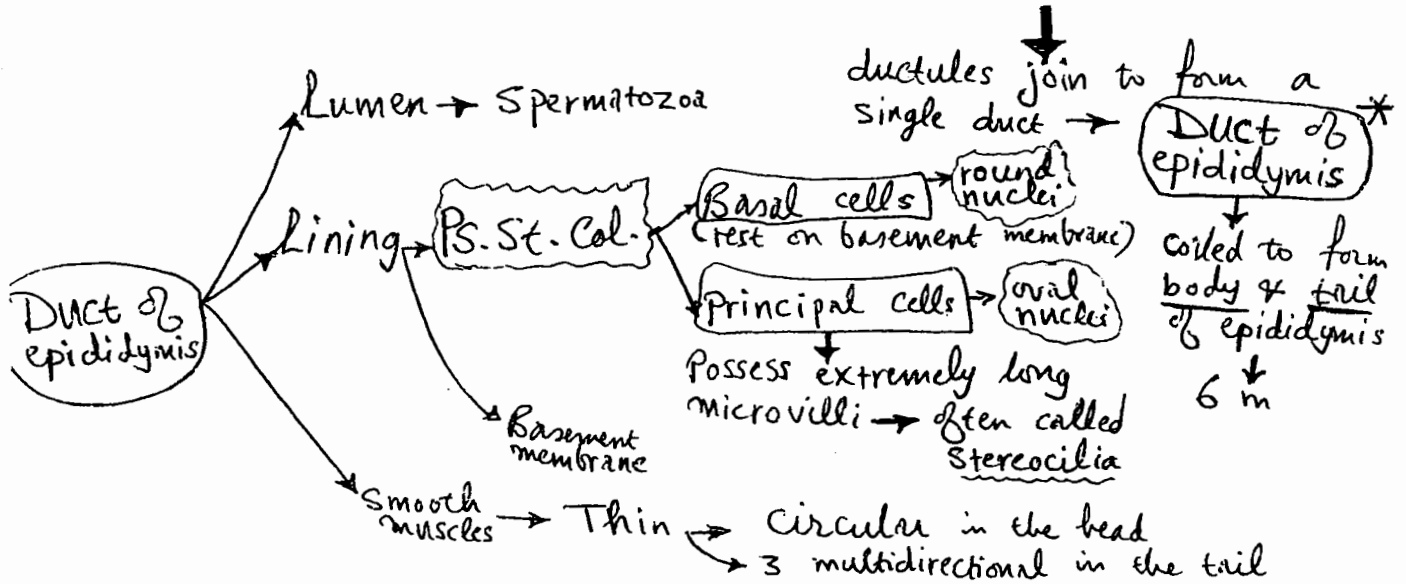 ductules join to form a
single duct → Duct of *
epididymis
coiled to form
body & tail
of epididymis
6 m
Duct of
epididymis
Lumen → Spermatozoa
Lining → PS. St. Col.
Basal cells → round
nuclei
(rest on basement membrane)
Principal cells → oval
nuclei
Possess extremely long
microvilli → often called
Stereocilia
Basement
membrane
Smooth
muscles → Thin → Circular in the head
3 multidirectional in the tail